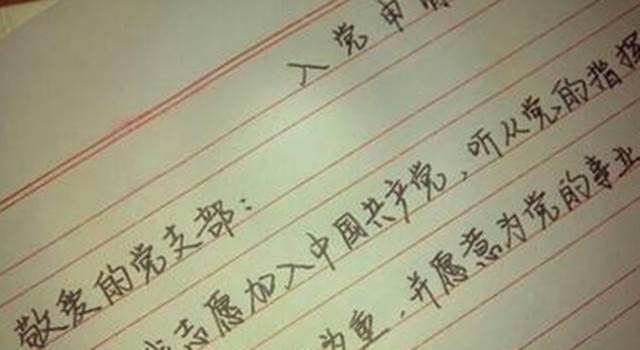 入党申
敬爱的党支部：
志愿加入中国共产党，听从党的指挥
为重，并愿意为党的事业